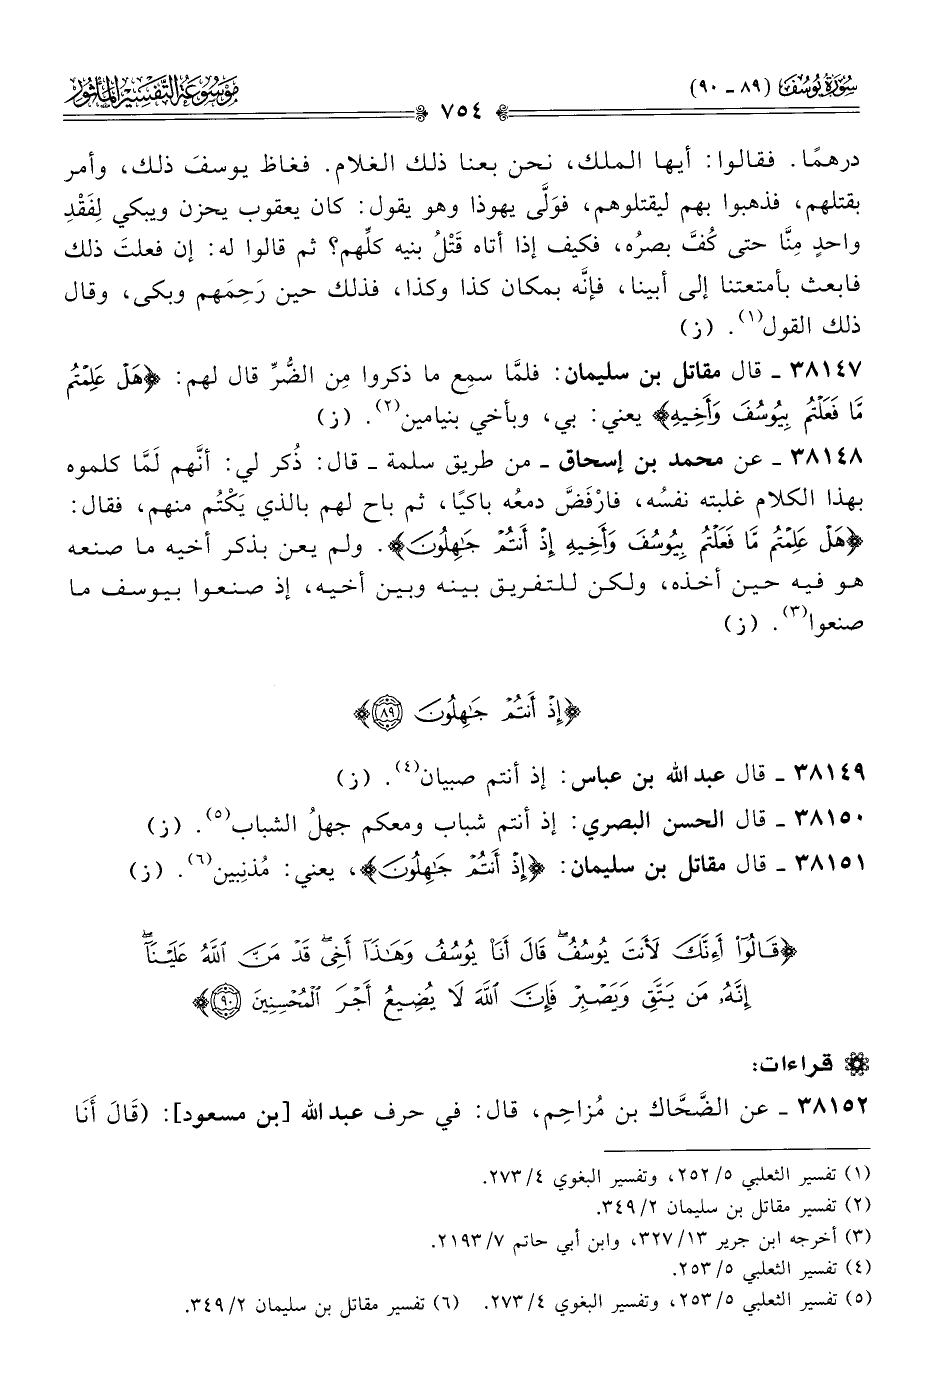 سُورَةُ يُوسُفَ (٨٩ - ٩٠)
مَوْسُوعَةُ التَّفْسِيرِ المَأْثُورِ
٧٥٤
درهمًا. فقالوا: أيها الملك، نحن بعنا ذلك الغلام. فغاظ يوسفَ ذلك، وأمر
بقتلهم، فذهبوا بهم ليقتلوهم، فوَلَّى يهوذا وهو يقول: كان يعقوب يحزن ويبكي لِفَقْدِ
واحدٍ مِنَّا حتى كُفَّ بصرُه، فكيف إذا أتاه قَتْلُ بنيه كلِّهم؟ ثم قالوا له: إن فعلتَ ذلك
فابعث بأمتعتنا إلى أبينا، فإنَّه بمكان كذا وكذا، فذلك حين رَحِمَهم وبكى، وقال
ذلك القول(١). (ز)
٣٨١٤٧ ـ قال مقاتل بن سليمان: فلمَّا سمِع ما ذكروا مِن الضُّرِّ قال لهم: ﴿هَلْ عَلِمْتُم
مَّا فَعَلْتُم بِيُوسُفَ وَأَخِيهِ﴾ يعني: بي، وبأخي بنيامين(٢). (ز)
٣٨١٤٨ ـ عن محمد بن إسحاق ـ من طريق سلمة ـ قال: ذُكر لي: أنَّهم لَمَّا كلموه
بهذا الكلام غلبته نفسُه، فارْفَضَّ دمعُه باكيًا، ثم باح لهم بالذي يَكْتُم منهم، فقال:
﴿هَلْ عَلِمْتُم مَّا فَعَلْتُم بِيُوسُفَ وَأَخِيهِ إِذْ أَنتُمْ جَٰهِلُونَ﴾. ولم يعن بذكر أخيه ما صنعه
هو فيه حين أخذه، ولكن للتفريق بينه وبين أخيه، إذ صنعوا بيوسف ما
صنعوا(٣). (ز)
﴿إِذْ أَنتُمْ جَٰهِلُونَ ٨٩﴾
٣٨١٤٩ ـ قال عبد الله بن عباس: إذ أنتم صبيان(٤). (ز)
٣٨١٥٠ ـ قال الحسن البصري: إذ أنتم شباب ومعكم جهلُ الشباب(٥). (ز)
٣٨١٥١ ـ قال مقاتل بن سليمان: ﴿إِذْ أَنتُمْ جَٰهِلُونَ﴾، يعني: مُذنِبين(٦). (ز)
﴿قَالُوٓا۟ أَءِنَّكَ لَأَنتَ يُوسُفُ ۖ قَالَ أَنَا۠ يُوسُفُ وَهَٰذَآ أَخِى ۖ قَدْ مَنَّ ٱللَّهُ عَلَيْنَآ ۖ
إِنَّهُۥ مَن يَتَّقِ وَيَصْبِرْ فَإِنَّ ٱللَّهَ لَا يُضِيعُ أَجْرَ ٱلْمُحْسِنِينَ ٩٠﴾
قراءات:
٣٨١٥٢ ـ عن الضَّحَّاك بن مُزاحِم، قال: في حرف عبد الله [بن مسعود]: (قَالَ أَنَا
(١) تفسير الثعلبي ٥/ ٢٥٢، وتفسير البغوي ٤/ ٢٧٣.
(٢) تفسير مقاتل بن سليمان ٢/ ٣٤٩.
(٣) أخرجه ابن جرير ١٣/ ٣٢٧، وابن أبي حاتم ٧/ ٢١٩٣.
(٤) تفسير الثعلبي ٥/ ٢٥٣.
(٥) تفسير الثعلبي ٥/ ٢٥٣، وتفسير البغوي ٤/ ٢٧٣. (٦) تفسير مقاتل بن سليمان ٢/ ٣٤٩.